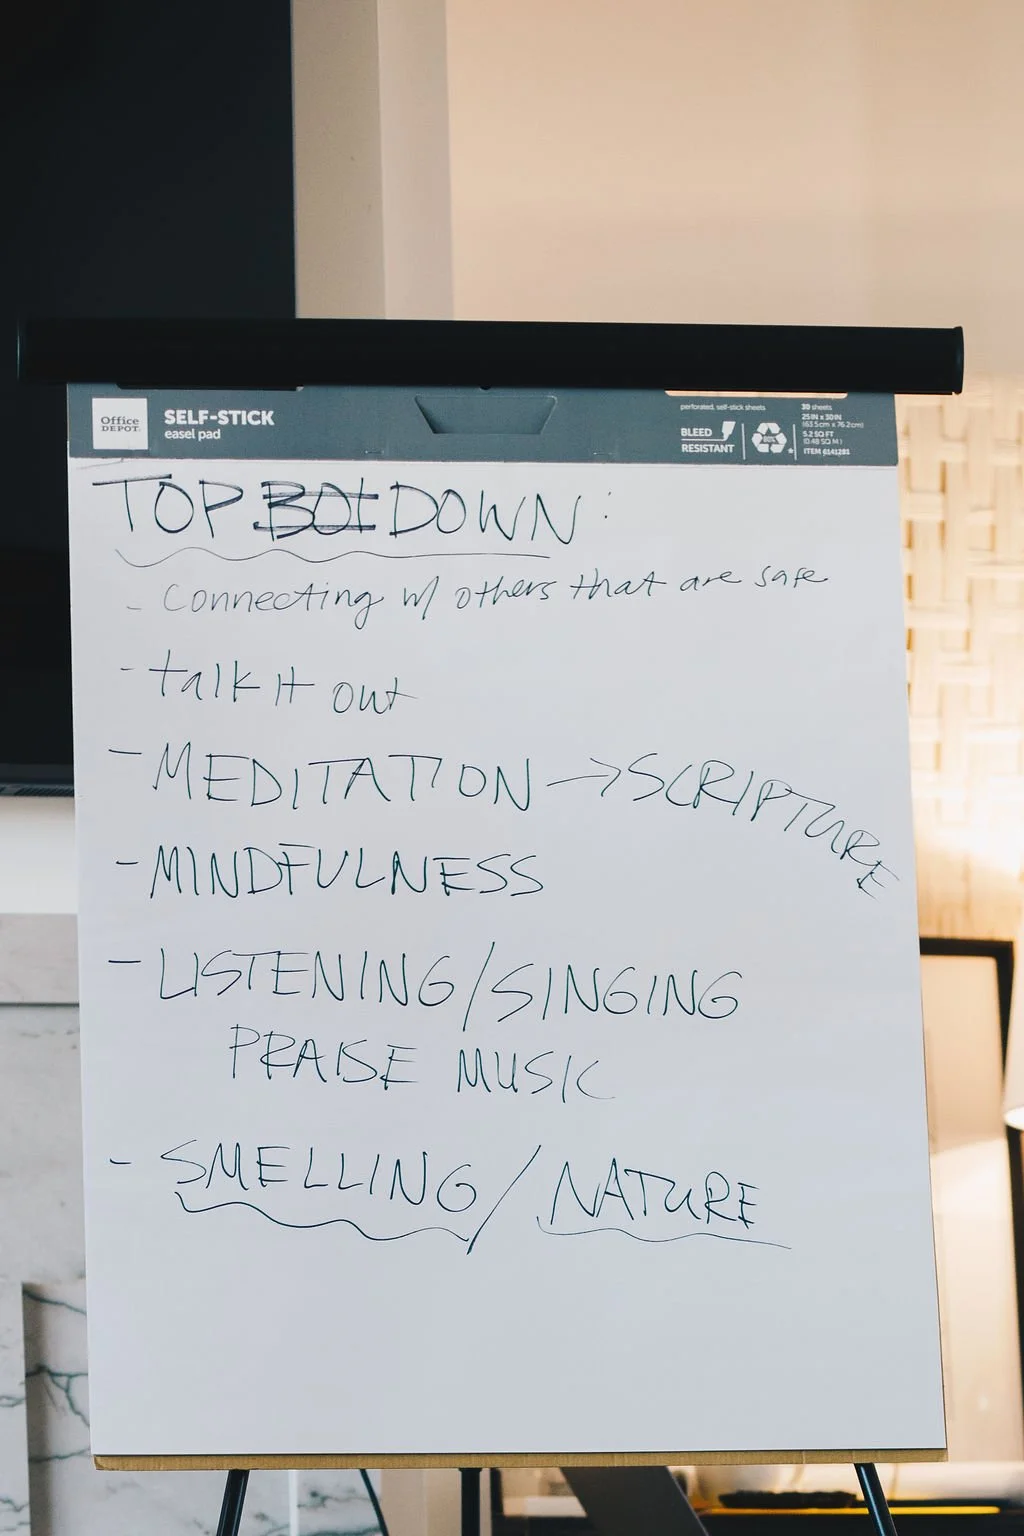 Office DEPOT
SELF-STICK
easel pad
perforated, self-stick sheets
BLEED
RESISTANT
80%
30 sheets
25 IN x 30 IN
(63.5cm x 76.2cm)
5.2 SQ FT
(0.48 SQ M)
ITEM 6141281
TOP BOT DOWN:
- Connecting w/ others that are safe
- talk it out
- MEDITATION → SCRIPTURE
- MINDFULNESS
- LISTENING/SINGING
PRAISE MUSIC
- SMELLING/NATURE